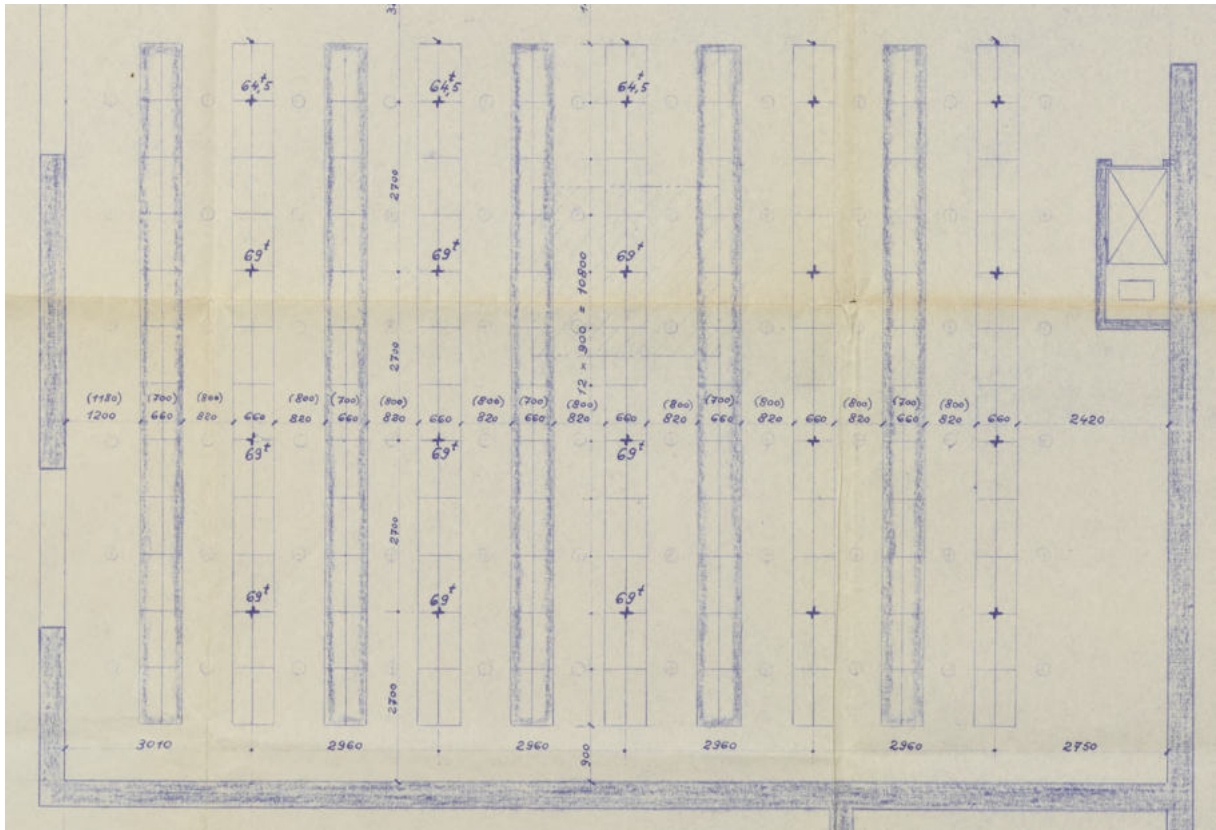 64,5t 64,5t 64,5t
2700
69t 69t 69t
12 × 900 = 10800
2700
(1180) (700) (800) (800) (700) (800) (800) (700) (800) (800) (700) (800) (800) (700) (800)
1200 660 820 660 820 660 820 660 820 660 820 660 820 660 820 660 820 660 820 660 2420
69t 69t 69t
2700
69t 69t 69t
2700
3010 2960 2960 2960 2960 2750
900